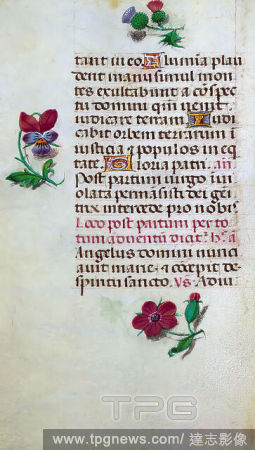 tant in eo. Flumina plau
dent manu simul mon
tes exultabunt a cōspec
tu domini qm̄ uenit
iudicare terram. Iudi
cabit orbem terrarum ī
iusticia & populos in eq
tate. Gloria patri. añ
Post partum uirgo īui
olata permāsisti dei geni
trix intercede pro nobis.
Loco post partum per to
tum aduentū dicat.
Angelus domini nunci
auit marie & cōcepit de
spiritu sancto. Vs. Adiu
TPG
www.tpgnews.com/ 達志影像